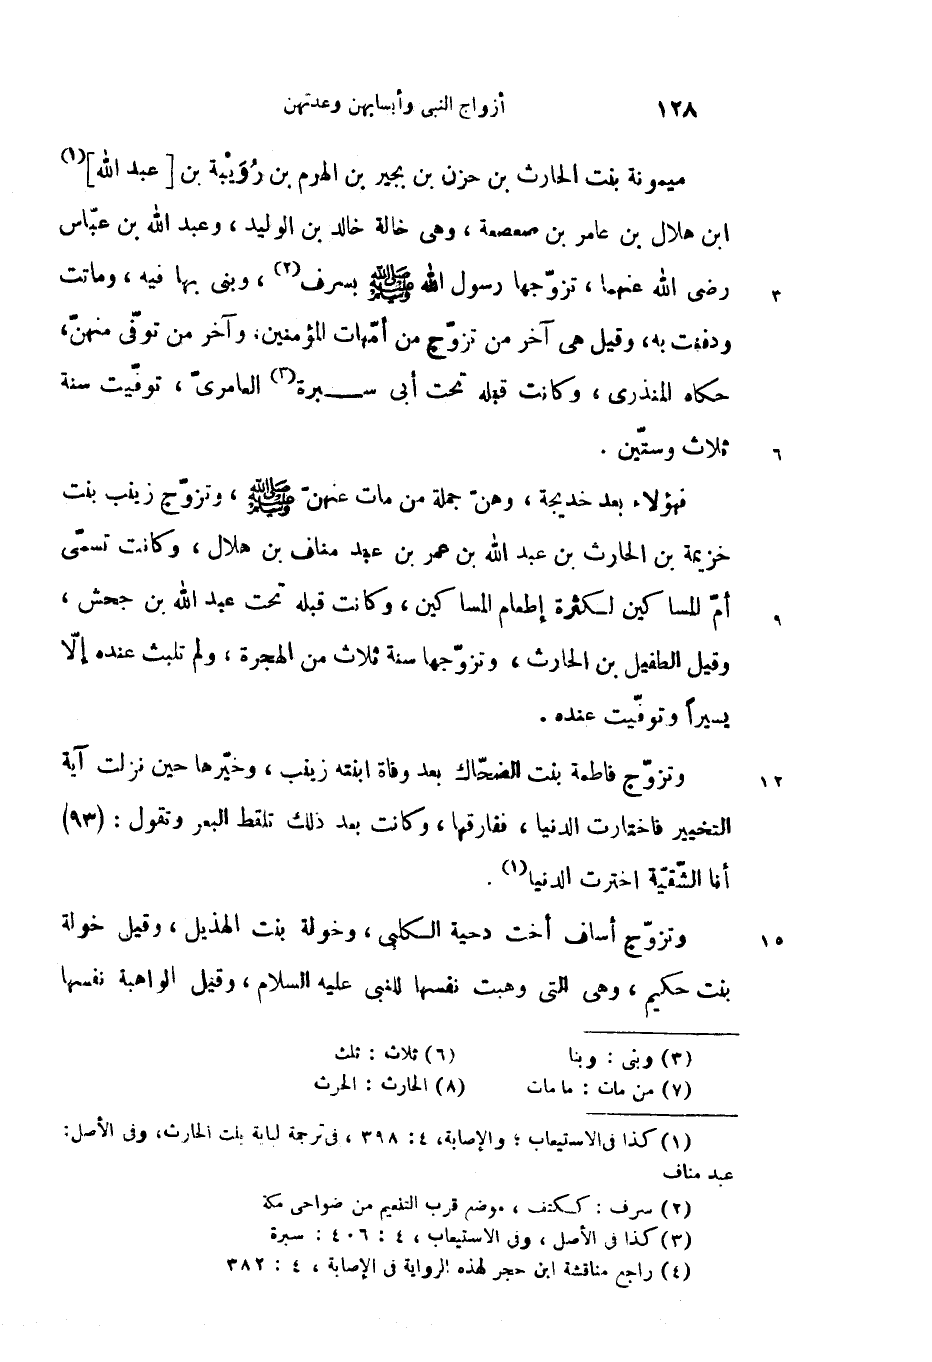 ١٢٨ أزواج النبى وأنسابهن وعدتهن
ميمونة بنت الحارث بن حزن بن بجير بن الهرم بن رُوَيْبة بن [ عبد الله ](١)
ابن هلال بن عامر بن صعصعة ، وهى خالة خالد بن الوليد ، وعبد الله بن عبّاس
٣ رضى الله عنهما ، تزوّجها رسول الله ﷺ بسرف(٢) ، وبنى بها فيه ، وماتت
ودفنت به، وقيل هى آخر من تزوّج من أمّهات المؤمنين، وآخر من توفّى منهنّ،
حكاه المنذرى ، وكانت قبله تحت أبى سـبرة(٣) العامرىّ ، توفّيت سنة
٦ ثلاث وستّين .
فهؤلاء بعد خديجة ، وهنّ جملة من مات عنهنّ ﷺ ، وتزوّج زينب بنت
خزيمة بن الحارث بن عبد الله بن عمر بن عبد مناف بن هلال ، وكانت تسمّى
٩ أمّ المساكين لكثرة إطعام المساكين ، وكانت قبله تحت عبد الله بن جحش ،
وقيل الطفيل بن الحارث ، وتزوّجها سنة ثلاث من الهجرة ، ولم تلبث عنده إلّا
يسيراً وتوفّيت عنده .
١٢ وتزوّج فاطمة بنت الضحّاك بعد وفاة ابنته زينب ، وخيّرها حين نزلت آية
التخيير فاختارت الدنيا ، ففارقها ، وكانت بعد ذلك تلقط البعر وتقول : (٩٣)
أنا الشّقيّة اخترت الدنيا(١) .
١٥ وتزوّج أساف أخت دحية الكلبى ، وخولة بنت الهذيل ، وقيل خولة
بنت حكيم ، وهى التى وهبت نفسها للنبى عليه السلام ، وقيل الواهبة نفسها
(٣) وبنى : وبنا (٦) ثلاث : ثلث
(٧) من مات : مامات (٨) الحارث : الحرث
(١) كذا فى الاستيعاب ؛ والإصابة، ٤: ٣٩٨ ، فى ترجمة لبابة بنت الحارث، وفى الأصل:
عبد مناف
(٢) سرف : ككتف ، موضع قرب التنعيم من ضواحى مكة
(٣) كذا فى الأصل ، وفى الاستيعاب ، ٤ : ٤٠٦ : سبرة
(٤) راجع مناقشة ابن حجر لهذه الرواية فى الإصابة ، ٤ : ٣٨٢